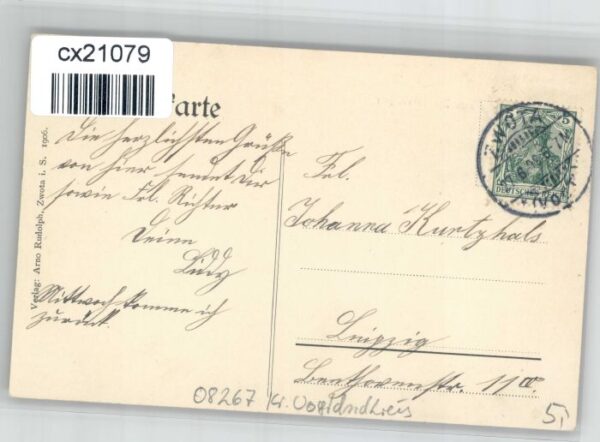 cx21079
Karte
Verlag: Arno Rudolph, Zwota i. S. 1906.
Die herzlichsten Grüße
von hier sendet Dir
sowie Frl. Richter
Deine
Lucy
Mittwoch komme ich
zurück.
5
ZWOTA
DEUTSCHES
Frl.
Johanna Kurtzhals
Leipzig
Beethovenstr. 11
08267 Kr. Vogtlandkreis
5,